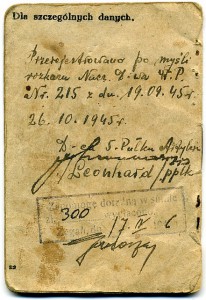 Dla szczególnych danych.
Przerejestrowano po myśli
rozkazu Nacz. D-twa W.P.
Nr. 215 z dn. 19.09.45r.
26.10.1945r.
D-ca 5. Pułku Artylerii
/Leonhard/ ppłk
300
17 IV 6
22